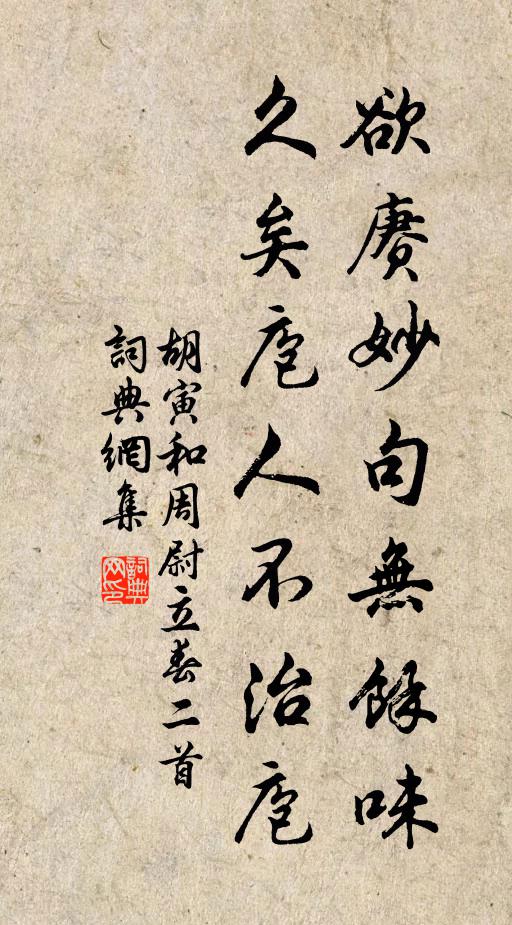 欲賡妙句無餘味
久矣庖人不治庖
胡寅和周尉立春二首
詞典網集
詞典网印